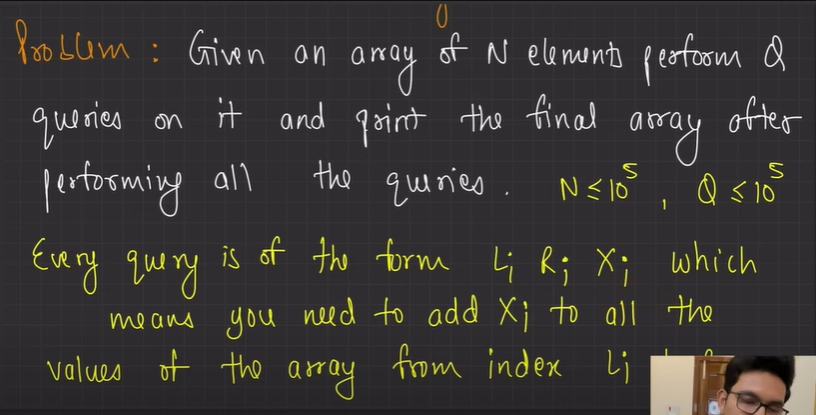 Problem : Given an array of N elements perform Q
queries on it and print the final array after
performing all the queries. N ≤ 10⁵, Q ≤ 10⁵
Every query is of the form Li Ri Xi which
means you need to add Xi to all the
values of the array from index Li